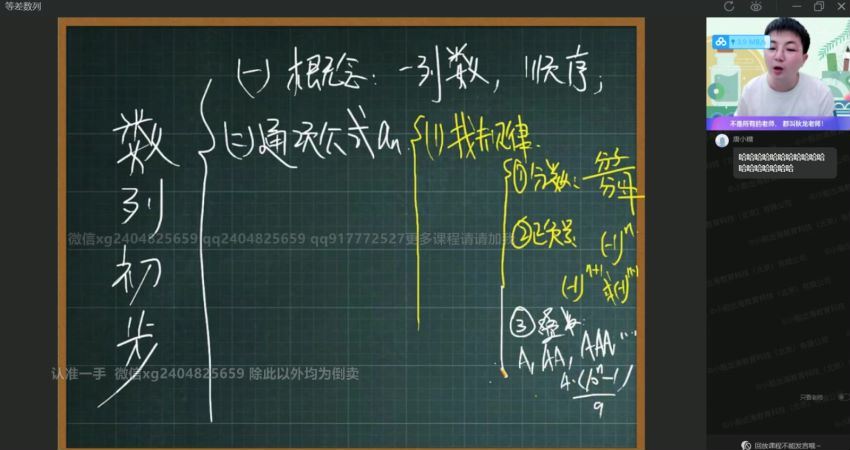 等差数列
3.9 MB/s
(一) 概念：一列数，顺序；
数列初步
(二) 通项公式an
(1) 找规律.
① 分数：分子/分母
② 正负号：(-1)^n
(-1)^{n+1} 或 (-1)^{n-1}
③ 叠数：
A, AA, AAA, ...
A·(10^n-1)/9
微信xg2404825659 qq2404825659 qq917772527更多课程请请加我
认准一手 微信xg2404825659 除此以外均为倒卖
唐小糖
哈哈哈哈哈哈哈哈哈哈哈
哈哈哈哈哈哈哈
只看老师
回放课程不能发言哦~